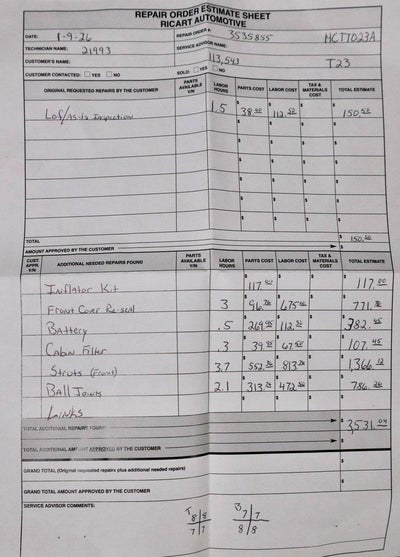 REPAIR ORDER ESTIMATE SHEET
RICART AUTOMOTIVE
DATE: 1-9-26 REPAIR ORDER #: 3535855 MCT1023A
TECHNICIAN NAME: 21993 SERVICE ADVISOR NAME:
CUSTOMER'S NAME: 113,543 T23
CUSTOMER CONTACTED: YES NO SOLD: YES NO
ORIGINAL REQUESTED REPAIRS BY THE CUSTOMER PARTS AVAILABLE Y/N LABOR HOURS PARTS COST LABOR COST TAX & MATERIALS COST TOTAL ESTIMATE
Lof/As-is Inspection 1.5 $ 38. $ 112.50 $ $ 150.
TOTAL $ 150.
AMOUNT APPROVED BY THE CUSTOMER $
CUST. APPR. Y/N ADDITIONAL NEEDED REPAIRS FOUND PARTS AVAILABLE Y/N LABOR HOURS PARTS COST LABOR COST TAX & MATERIALS COST TOTAL ESTIMATE
Inflator Kit $ 117.00 $ $ $ 117.00
Front Cover Re-seal 3 $ 96. $ 675. $ $ 771.
Battery .5 $ 269.95 $ 112.50 $ $ 382.45
Cabin Filter .3 $ 39. $ 67. $ $ 107.45
Struts (Front) 3.7 $ 552. $ 813. $ $ 1,366.12
Ball Joints 2.1 $ 313. $ 472.50 $ $ 786.
Links $ $ $ $
TOTAL ADDITIONAL REPAIRS FOUND $ 3,531.04
TOTAL ADDITIONAL AMOUNT APPROVED BY THE CUSTOMER $
GRAND TOTAL (Original requested repairs plus additional needed repairs) $
GRAND TOTAL AMOUNT APPROVED BY THE CUSTOMER $
SERVICE ADVISOR COMMENTS:
T 8|8 B 7|7
7|7 8|8